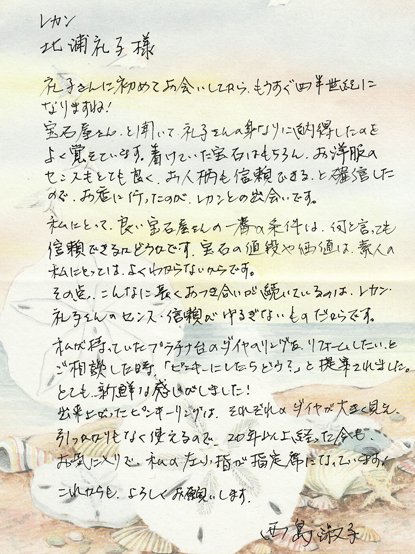 レカン
北浦礼子様
礼子さんに初めてお会いしてから、もうすぐ四半世紀に
なりますね!
宝石屋さん、と聞いて、礼子さんの身なりに納得したのを
よく覚えています。着けていた宝石はもちろん、お洋服の
センスもとても良く、お人柄も信頼できる、と確信した
ので、お店に行ったのが、レカンとの出会いです。
私にとって、良い宝石屋さんの一番の条件は、何と言っても
信頼できるかどうかです。宝石の値段や価値は、素人の
私にとっては、よくわからないからです。
その点、こんなに長くおつき合いが続いているのは、レカン・
礼子さんのセンス・信頼がゆるぎないものだからです。
私が持っていたプラチナ台のダイヤのリングを、リフォームしたい、と
ご相談した時、「ピンキーにしたらどう?」と提案されました。
とても、新鮮な感じがしました!
出来上がったピンキーリングは、それぞれのダイヤが大きく見え、
引っかかりもなく使えるので、20年以上経った今も、
お気に入りで、私の左小指が指定席になっています!
これからも、よろしくお願いします。
西島淑子